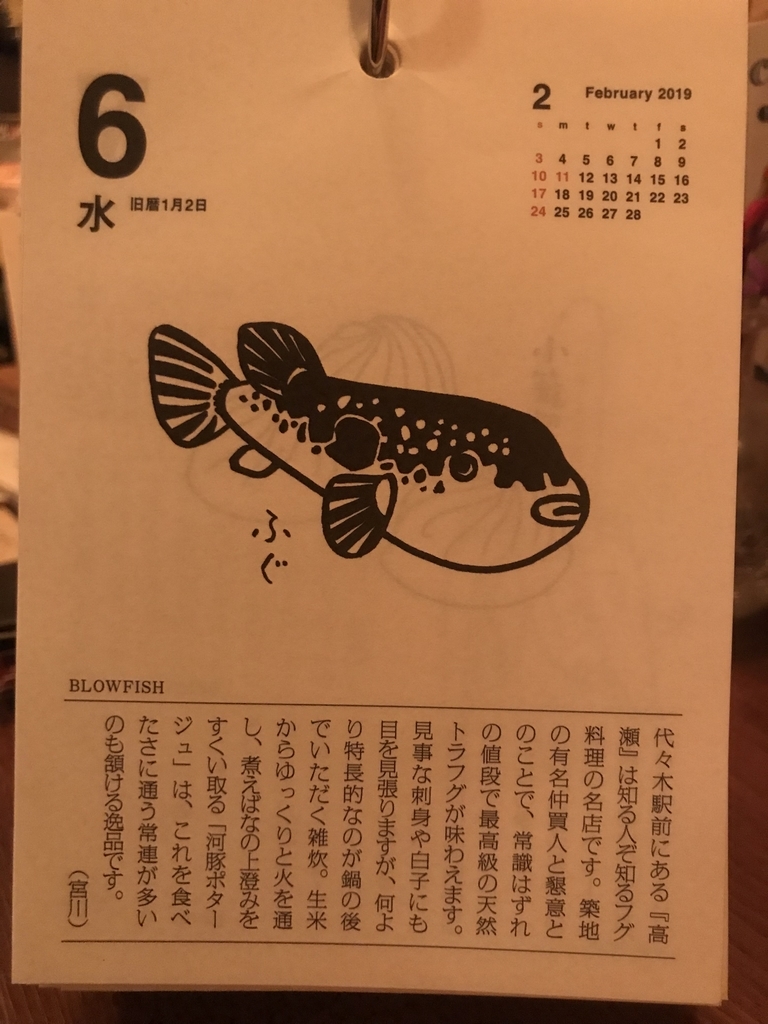 6
水
旧暦1月2日
2
February 2019
s m t w t f s
1 2
3 4 5 6 7 8 9
10 11 12 13 14 15 16
17 18 19 20 21 22 23
24 25 26 27 28
ふぐ
BLOWFISH
代々木駅前にある『高
瀬』は知る人ぞ知るフグ
料理の名店です。築地
の有名仲買人と懇意と
のことで、常識はずれ
の値段で最高級の天然
トラフグが味わえます。
見事な刺身や白子にも
目を見張りますが、何よ
り特長的なのが鍋の後
でいただく雑炊。生米
からゆっくりと火を通
し、煮えばなの上澄みを
すくい取る「河豚ポター
ジュ」は、これを食べ
たさに通う常連が多い
のも頷ける逸品です。
（宮川）